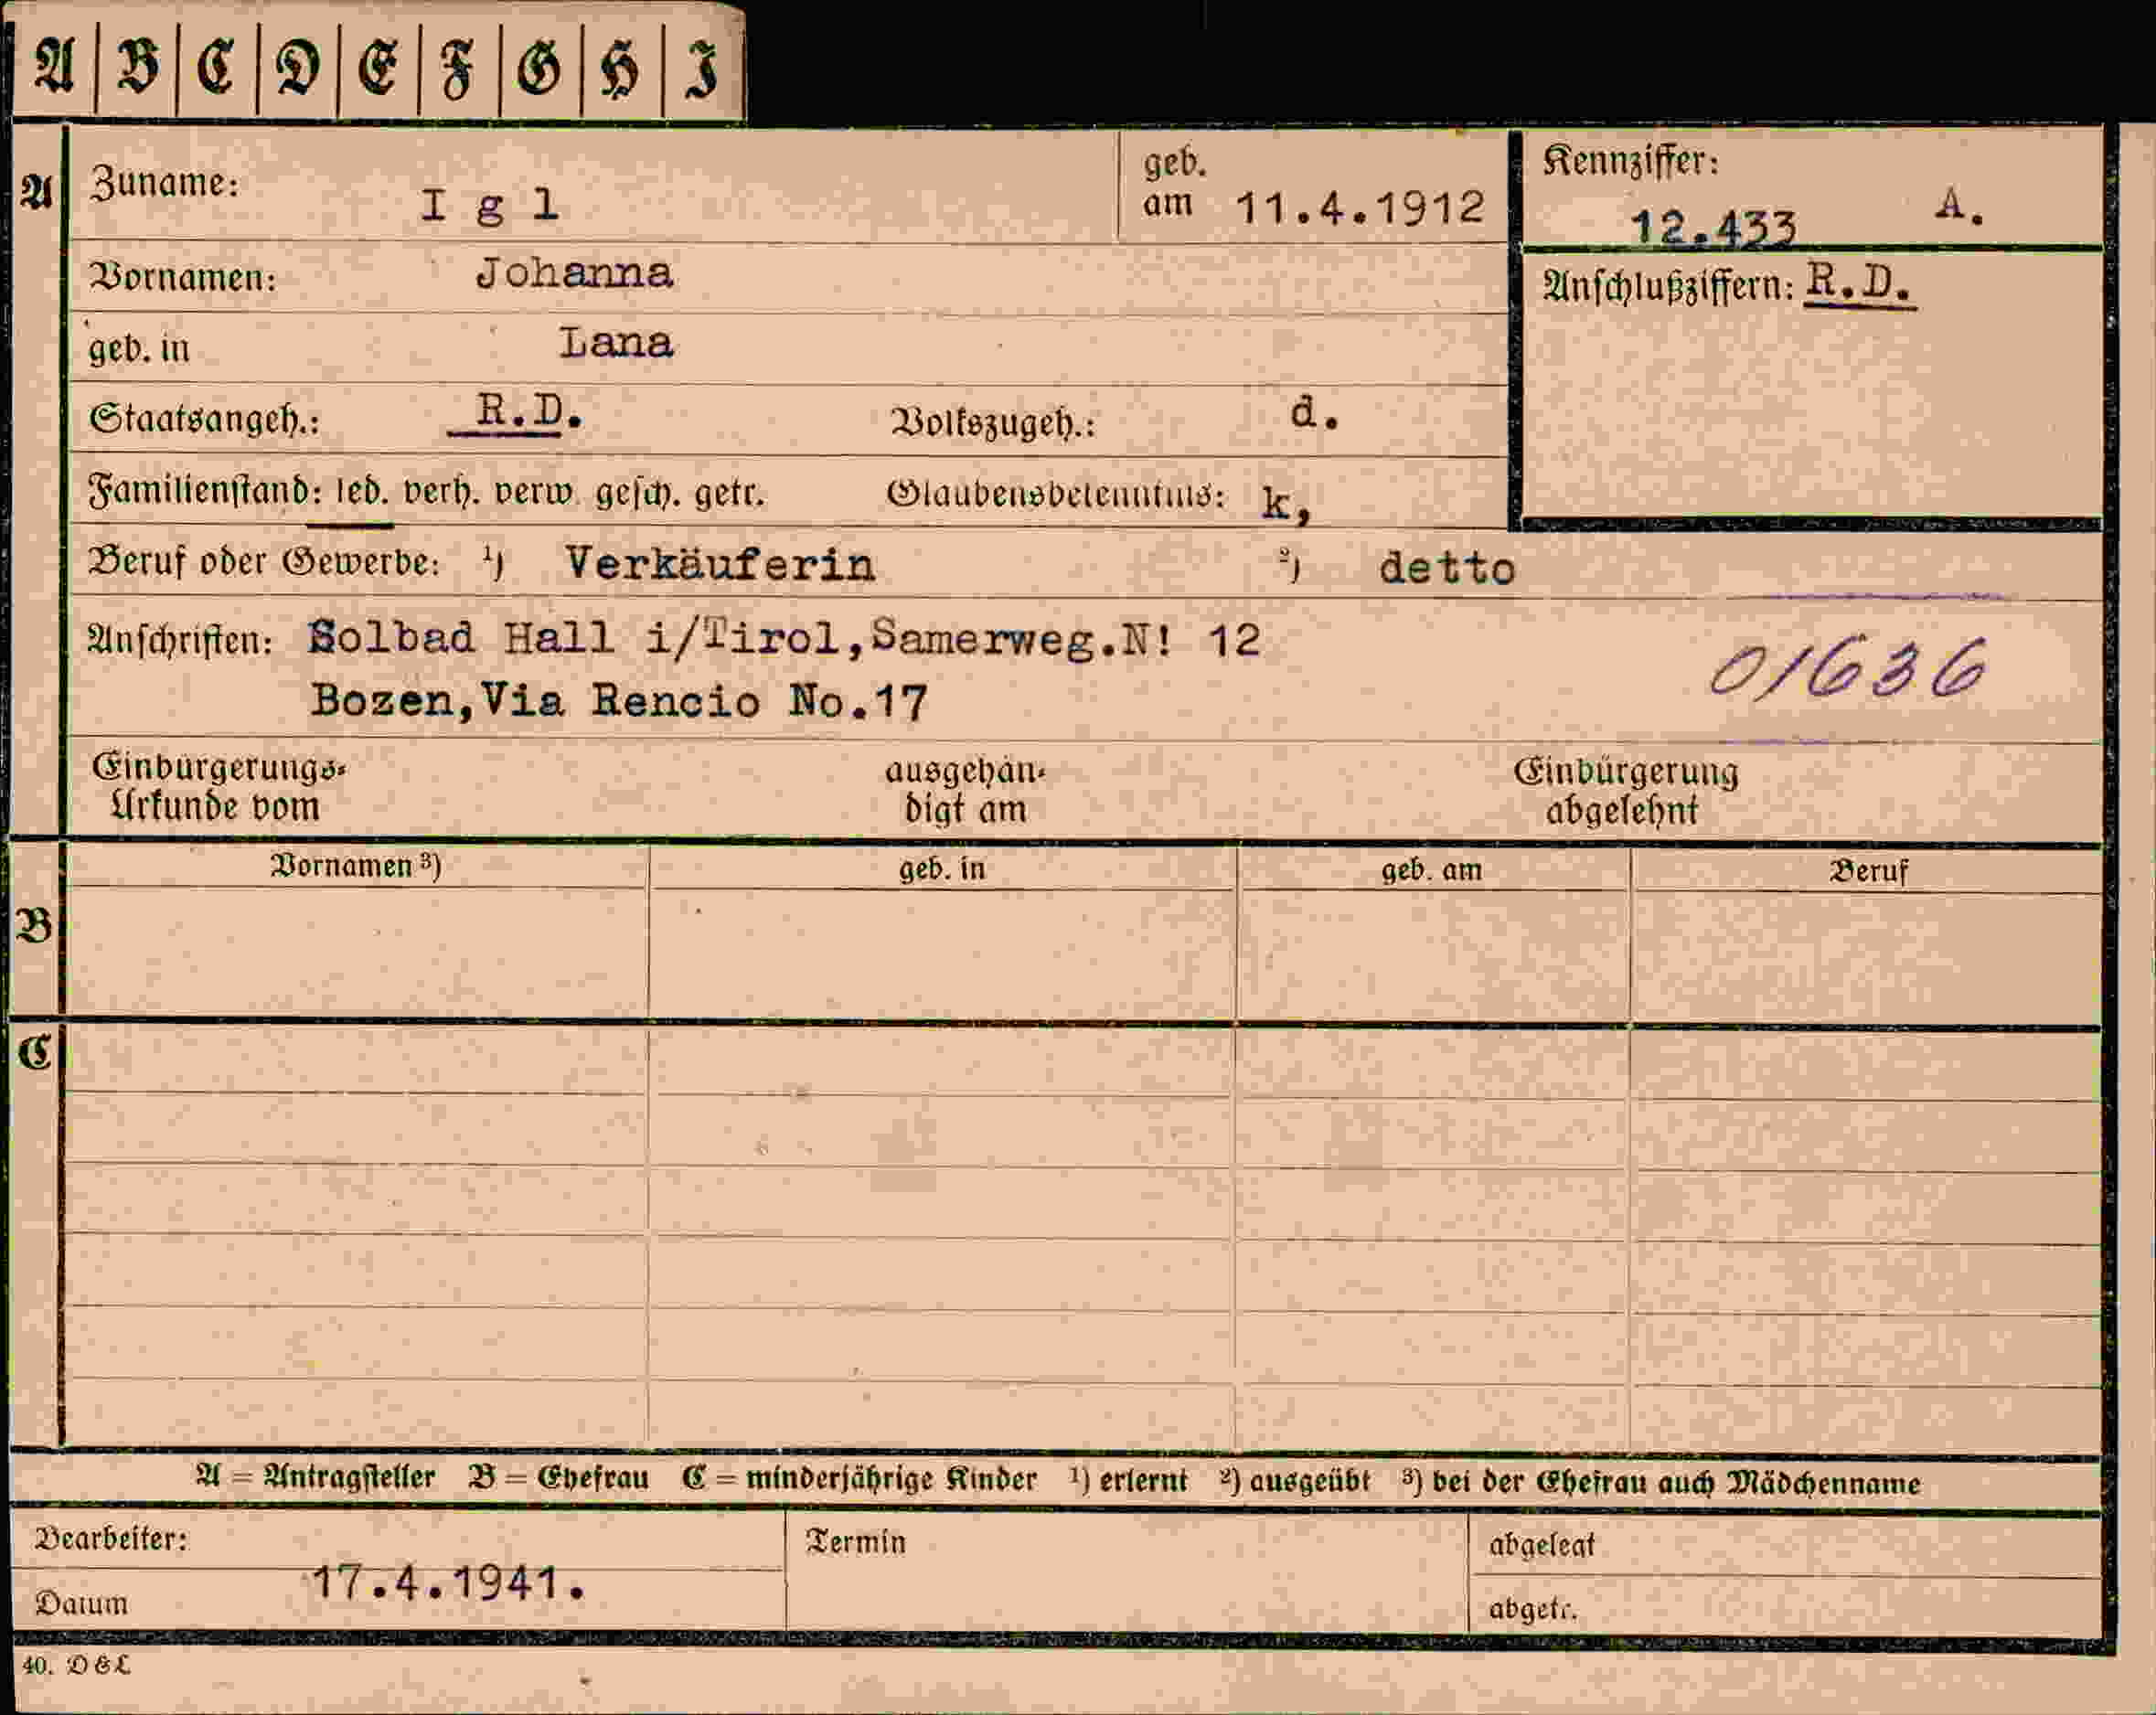 A B C D E F G H I
A Zuname: I g l geb. am 11.4.1912 Kennziffer: 12.433 A.
Vornamen: Johanna Anschlußziffern: R.D.
geb. in Lana
Staatsangeh.: R.D. Volkszugeh.: d.
Familienstand: led. verh. verw. gesch. getr. Glaubensbekenntnis: k,
Beruf oder Gewerbe: ¹) Verkäuferin ²) detto
Anschriften: Solbad Hall i/Tirol,Samerweg.N! 12
Bozen,Via Rencio No.17
01636
Einbürgerungs-
Urkunde vom
ausgehän-
digt am
Einbürgerung
abgelehnt
Vornamen ³) geb. in geb. am Beruf
B
C
A = Antragsteller B = Ehefrau C = minderjährige Kinder ¹) erlernt ²) ausgeübt ³) bei der Ehefrau auch Mädchenname
Bearbeiter: Termin abgelegt
Datum 17.4.1941. abgetr.
40. DGL